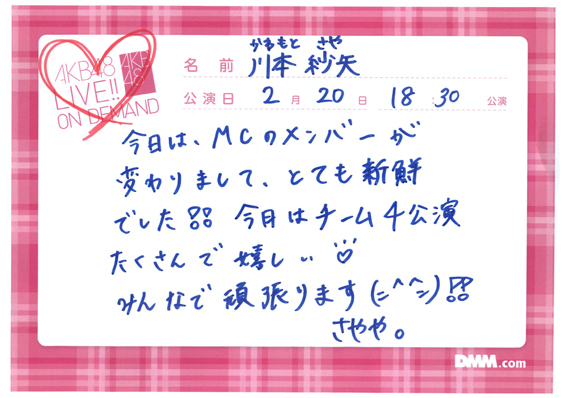 AKB48
LIVE!!
ON DEMAND
AKB
48
かわもと さや
名前 川本 紗矢
公演日 2月20日 18:30 公演
今日は、MCのメンバーが
変わりまして、とても新鮮
でした!! 今日はチーム4公演
たくさんで嬉しい
みんなで頑張ります(=^^=)!!
さやや。
DMM.com